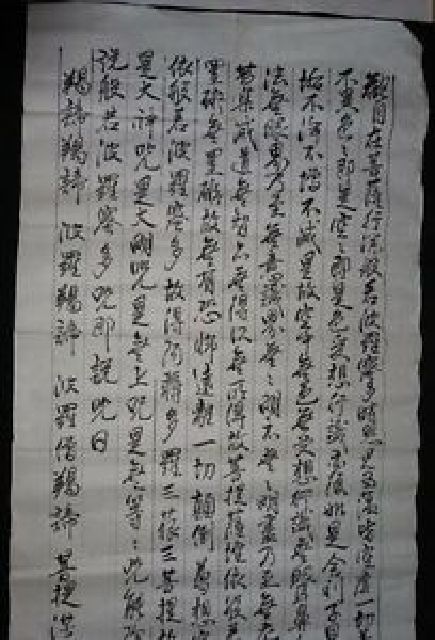 觀自在菩薩行深般若波羅蜜多時照見五蘊皆空度一切
不異色〻即是空〻即是色受想行識亦復如是舍利子
垢不淨不增不減是故空中無色無受想行識無眼耳鼻
法無眼界乃至無意識界無〻明亦無〻明盡乃至無老
苦集滅道無智亦無得以無所得故菩提薩埵依般若
罣礙無罣礙故無有恐怖遠離一切顛倒夢想究
依般若波羅蜜多故得阿耨多羅三藐三菩提故
是大神咒是大明咒是無上咒是無等〻咒能除
說般若波羅蜜多咒即說咒曰
羯諦羯諦 波羅羯諦 波羅僧羯諦 菩提薩